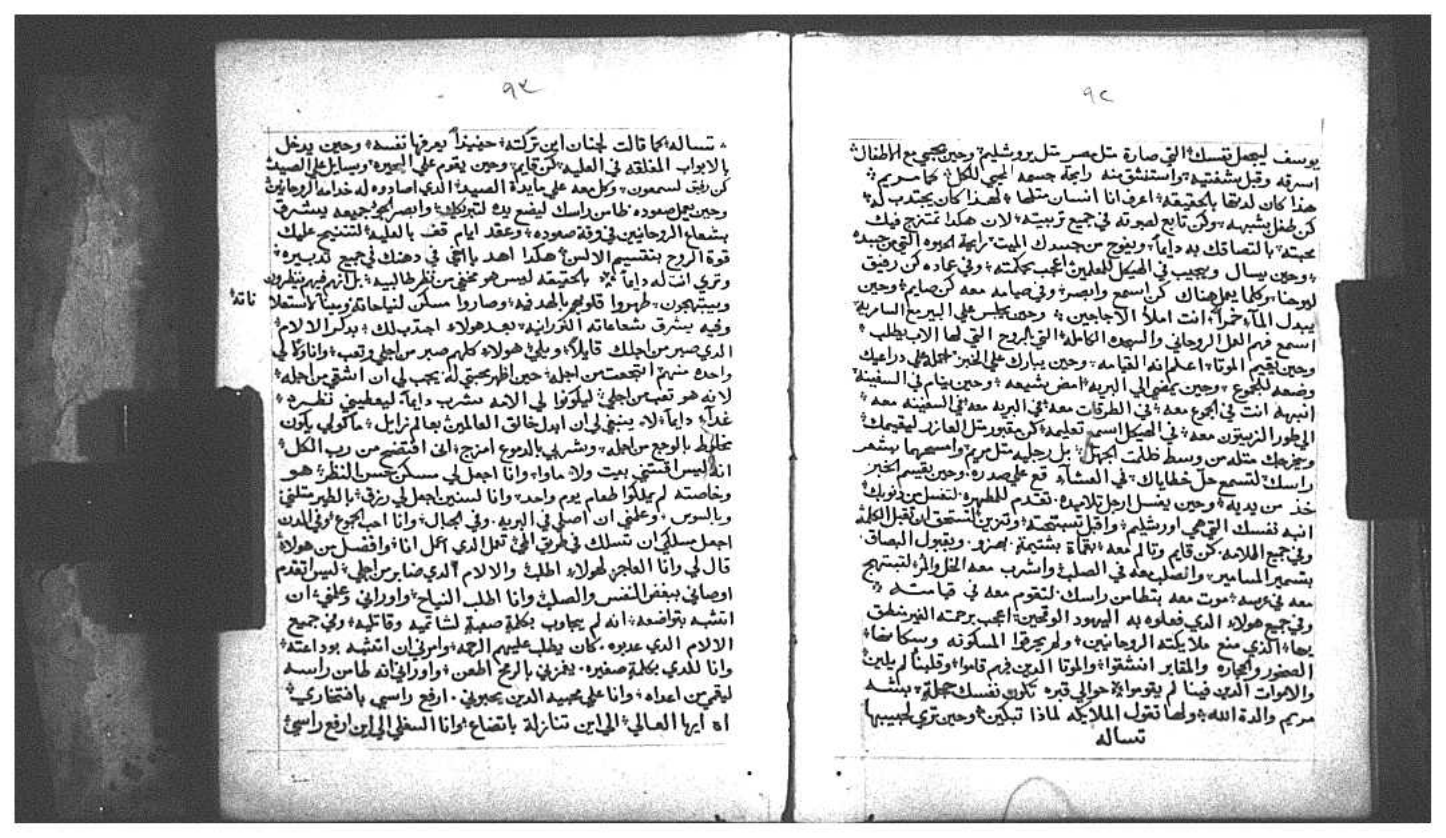 ٩٢
يوسف ليجعل نفسك التي صارة مثل مصر مثل يروشليم وحين يحبي مع الاطفال
اسرقه وقبل بشفتيه واستنشق منه رايحة جسمه المحيي للكل كما مريم
هذا كان لصقها بالحقيقة اعرف انا انسان مثلها لهذا كان يجتدب له
كن طفل يشبهه وكن تابع لصبوته في جميع تربيته لان هكدا تمتزج فيك
محبته بالتصاقك به دايماً ويفوح من جسدك الميت رايحة الحيوه التي من جسده
وحين يسال ويجيب في الهيكل للمعلمين اعجب بحكمته وفي عماده كن رفيق
ليوحنا وكلما يعمل هناك كن اسمع وابصر وفي صيامه معه كن صايم وحين
يبدل المآء خمراً انت املا الاجاجين وحين يجلس على البير مع السامرية
اسمع فهم العل الروحاني والسجده الكامله التي بالروح التي لها الاب يطلب
وحين يقيم الموتا اعلم انه القيامه وحين يبارك على الخبز احمله على دراعيك
وضعه للجموع وحين يمضي الى البريه امض بشيعه وحين ينام في السفينه
انبهه انت في الجموع معه في الطرقات معه في البريه معه في السفينه معه
الى طور الزيتون معه في الهيكل اسمع تعليمه كن مقبور مثل العازر ليقيمك
ويخرجك مثله من وسط ظلمت الجهل بل رجليه مثل مريم وامسحهما بشعر
راسك لتسمع حل خطاياك في العشآء قع على صدره وحين يقسم الخبز
خذ من يديه وحين يغسل ارجل تلاميده تقدم للمطهره لتغسل من دنوبك
انبه نفسك التي هي اورشليم واقبل تسبحته وتزين لتستحق ان تقبل الكلمة
وفي جميع الالامه كن قايم وتالم معه بشتيمة بهزو وبقبول البصاق
بتسمير المسامير والصلب معه في الصلب واشرب معه الخل والمر لتبتهج
معه في عرسه موت معه بتطامن راسك لتقوم معه في قيامته
وفي جميع هولاء الذي فعلوه به اليهود الوقحين اعجب برحمته الغير منطق
بها الذي منع ملايكته الروحانيين ولم يحرقوا المسكونه وسكانها
الصخور والحجاره والمقابر انشقوا والموتا الدين فيهم قاموا وقلبنا لم يلين
والاموات الدين فينا لم يقوموا حوالي قبره تكون نفسك حجلة بشبه
مريم والدة الله ولها تقول الملايكه لماذا تبكين وحين تري لحبيبها
تساله
٩٣
تساله كما قالت لجنان اين تركته حينيذاً يعرفها نفسه وحين يدخل
بالابواب المغلقه في العليه كن قايم وحين يقوم على البحيره وسايل على الصيد
كن رفيق لسمعون وكل معه على مايدة الصيد الدي اصادوه له خدامه الروحانيين
وحين يعمل صعوده طامن راسك ليضع يده لتبريكك وابصر الجو جميعه يشرق
بشعاع الروحانيين في وقة صعوده وعقد ايام قف بالعليه لتتنيح عليك
قوة الروح بتقسيم الالسن هكدا اهد يااخي في دهنك في جميع تدبيره
وتري انت له دايماً بالحقيقه ليس هو مخفي من نظر طالبيه بل انهم فيهم ينظرون
ويبتهجون طهروا قلوبهم بالهديفه وصاروا مسكن لنياحاته وميناً لاستعلا ناته
وفيه يشرق بشعاعاته النورانيه بعد هولاء اجتدب لك بدكر الالام
الدي صبر من اجلك قايلاً ويلي هولاء كلهم صبر من اجلي وتعب وانا ولا لي
واحده منهم اتوجعت من اجله حين اظهر محبتي له يجب لي ان اشقي من اجله
لانه هو تعب من اجلي ليكونوا لي الامه مشرب دايماً ليعطيني نظره
غدآء دايماً لاء ينبغي لي ان ابدل خالق العالمين بعالم زايل ماكولي يكون
مخلوط بالوجع من اجله وشربي بالدموع امزج انني افتضح من رب الكل
انه ليس اقتني بيت ولاء ماوا وانا اجعل لي مسكن حسن النظر هو
وخاصته لم يملكوا طعام يوم واحد وانا لسنين اجعل لي رزق بالطير مثلني
وبالسوس وعلمني ان اصلي في البريه وفي الجبال وانا احب الجموع وفي المدن
اجعل مسلكي ان تسلك في طريق الحي تعمل الدي اعمل انا وافضل من هولاء
قال لي وانا العاجز لهولاء اطلب والالام الدي صابر من اجلي ليس اتقدم
اوصاني ببغض النفس والصلب وانا اطلب النياح واوراني وعلمني ان
اتشبه بتواضعه انه لم يجاوب بكلمة صعبة لشاتميه وقاتليه وفي جميع
الالام الدي عدبوه كان يطلب عليهم الرحمه وامرني ان اتشبه بوداعته
وانا للدي بكلمة صغيره يغمزني بالرمح اطعن واوراني انه طامن راسه
ليقمي من اعداه وانا على محبيه الدين يحبوني ارفع راسي بافتخاري
اه ايها العالي الى اين تنازلة باتضاع وانا السفلي الى اين ارفع راسي